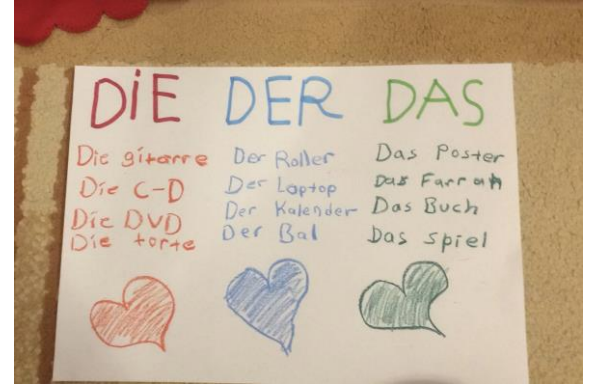 DİE
Die gitarre
Die C-D
Die DVD
Die torte
DER
Der Roller
Der Laptop
Der Kalender
Der Bal
DAS
Das Poster
Das Farrah
Das Buch
Das spiel